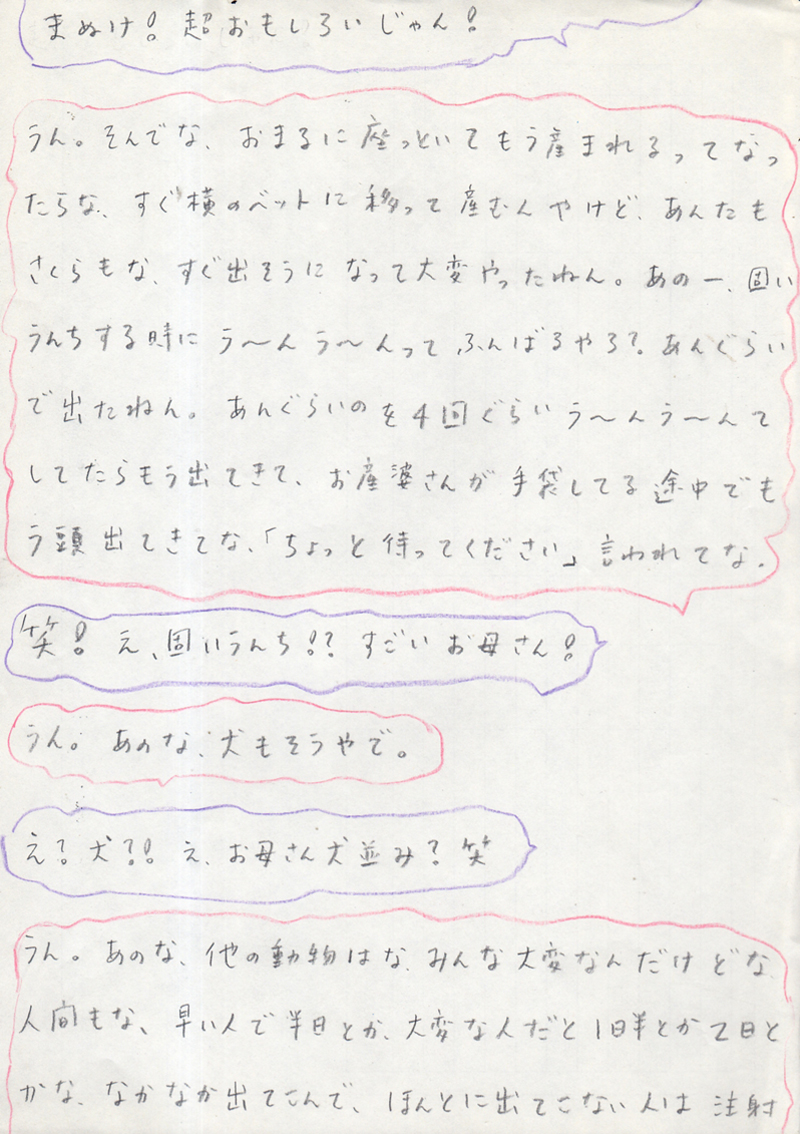 まぬけ!超おもしろいじゃん!
うん。そんでな、おまるに座っといてもう産まれるってなっ
たらな、すぐ横のベットに移って産むんやけど、あんたも
さくらもな、すぐ出そうになって大変やったねん。あのー、固い
うんちする時にう〜んう〜んってふんばるやろ?。あんぐらい
で出たねん。あんぐらいのを4回ぐらいう〜んう〜んて
してたらもう出てきて、お産婆さんが手袋してる途中でも
う頭出てきてな、「ちょっと待ってください」言われてな。
笑!え、固いうんち!?すごいお母さん!
うん。あのな、犬もそうやで。
え?犬?!え、お母さん犬並み?笑
うん。あのな、他の動物はな、みんな大変なんだけどな
人間もな、早い人で半日とか、大変な人だと1日半とか2日と
かな、なかなか出てこんで、ほんとに出てこない人は注射